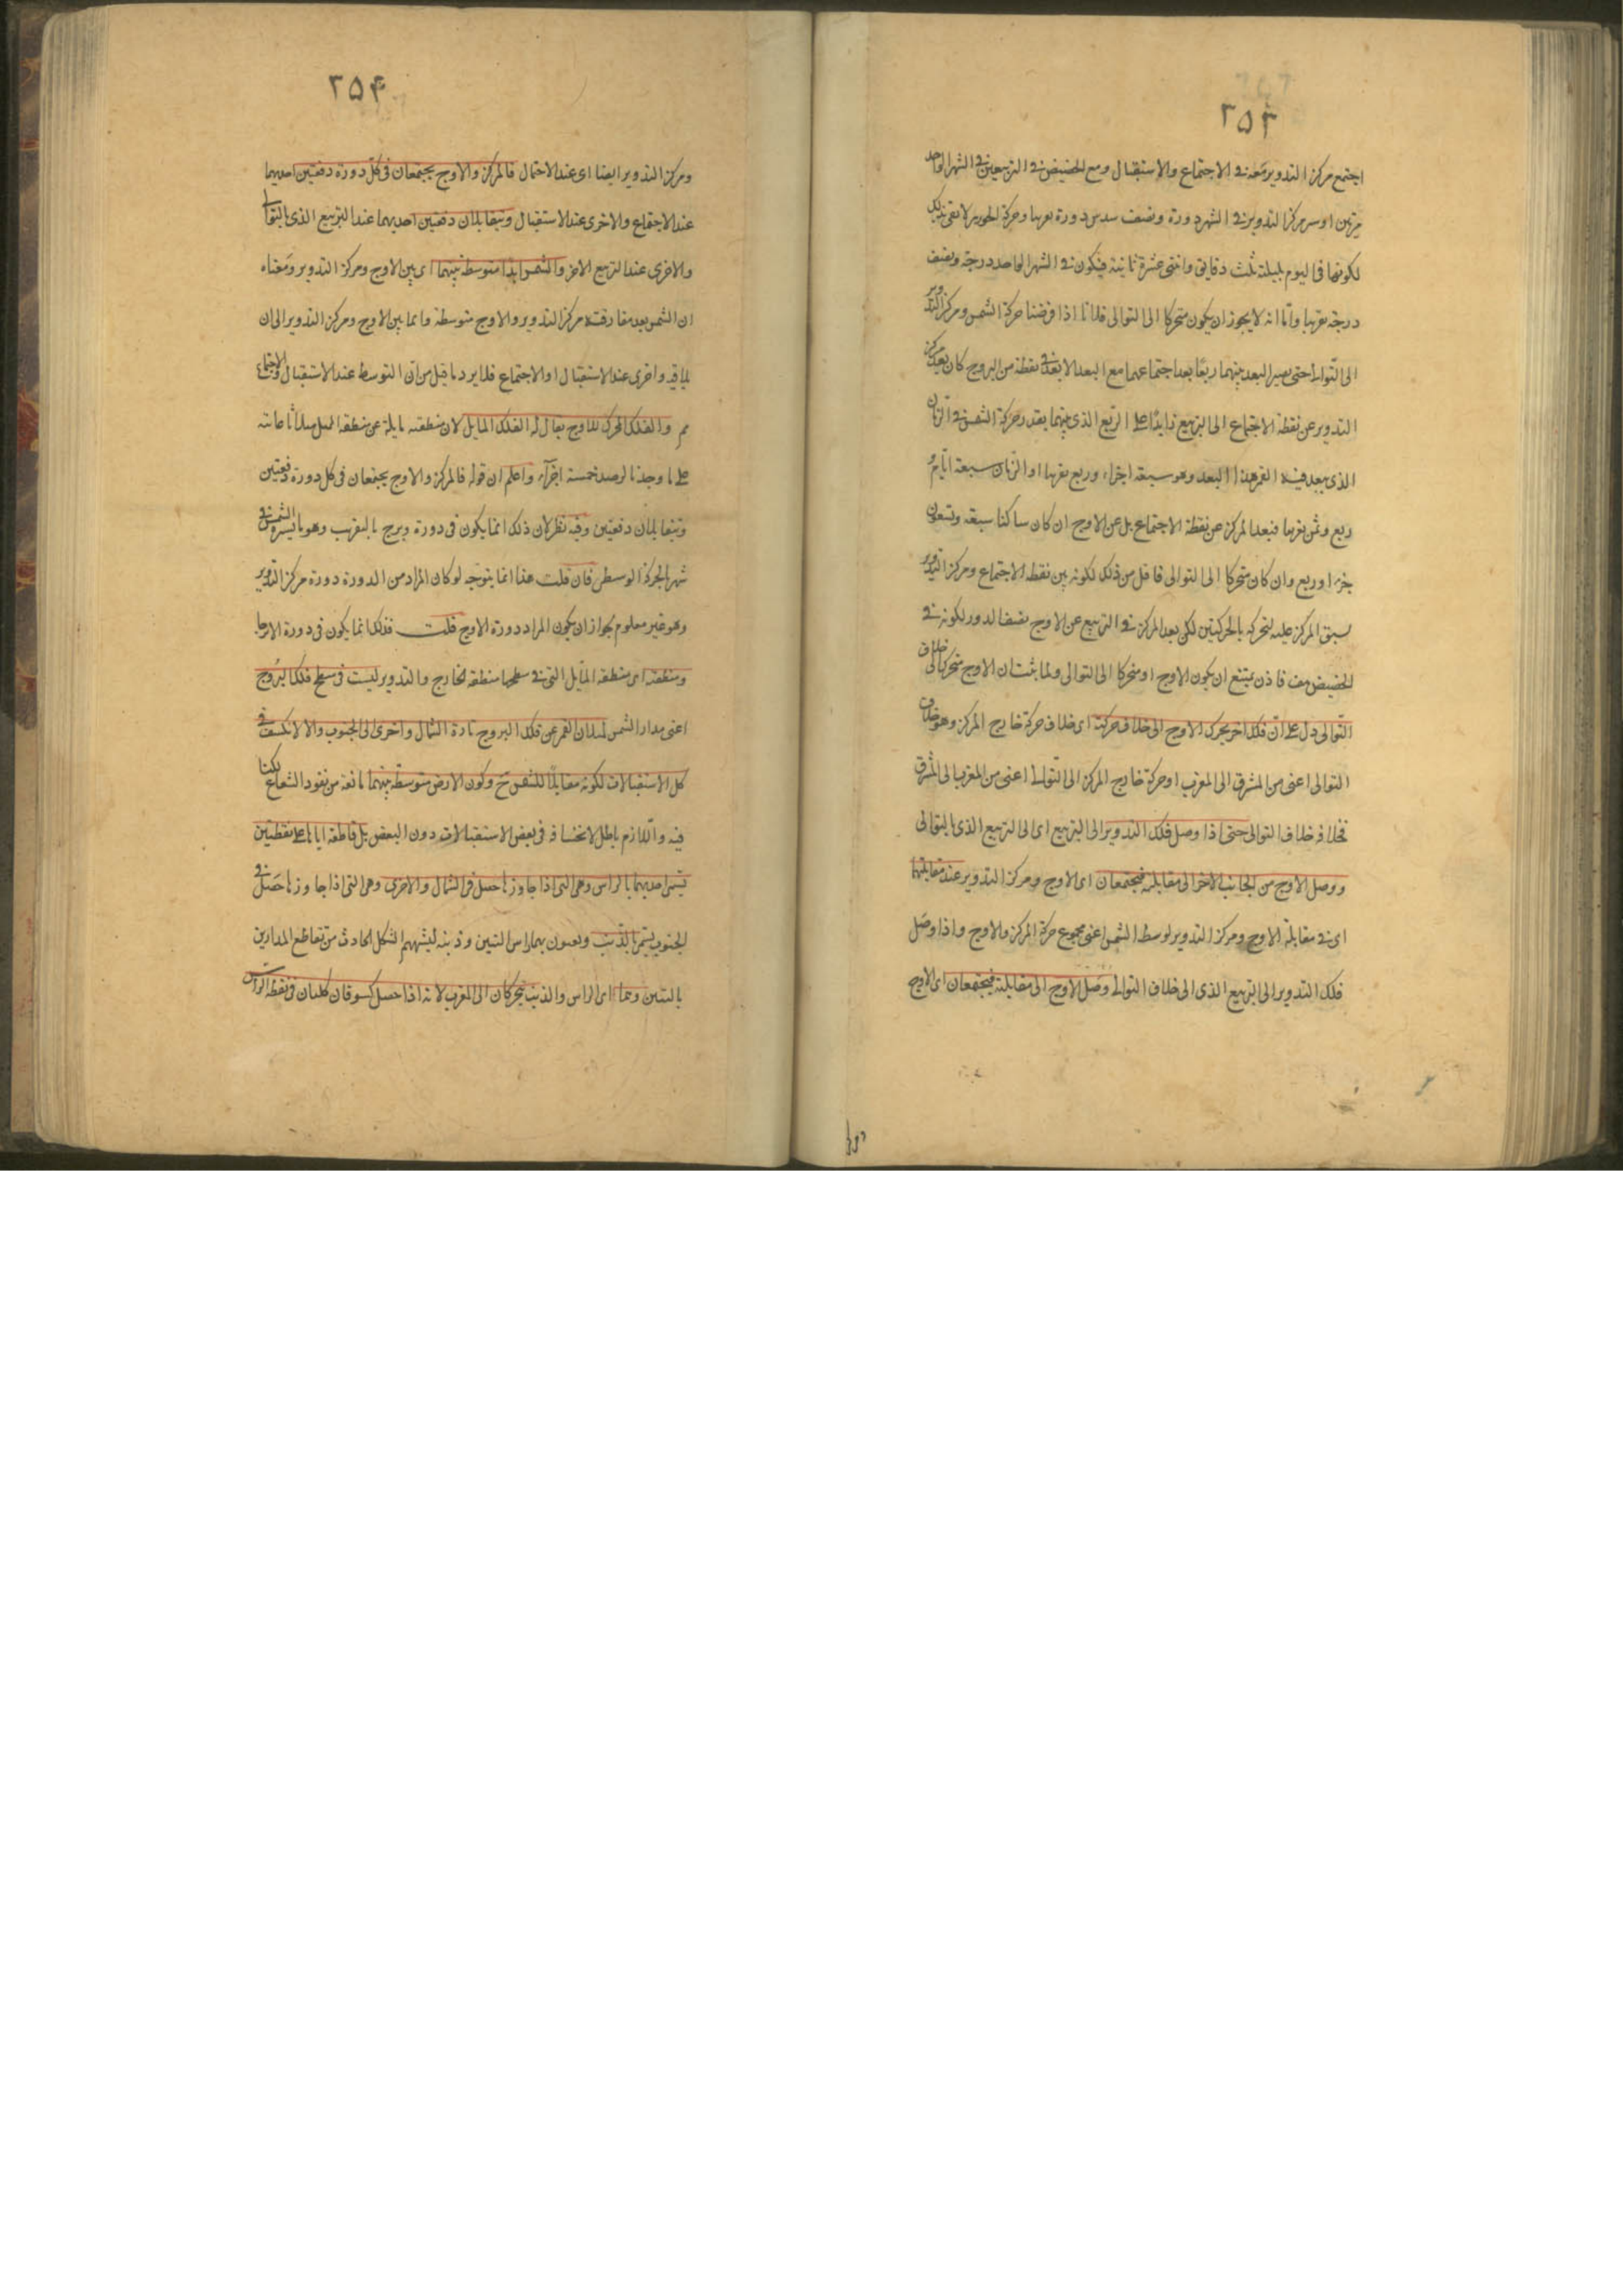 ٢٥٣
اجتمع مركز التدوير معه فى الاجتماع والاستقبال ومع الحضيض فى التربيعين فى الشهر الواحد
مرتين اوسر مركز التدوير فى الشهر دورة ونصف سدس دورة تقريبا وحركة الجوزهر لا تفى بذلك
لكونها فى اليوم بليلته ثلث دقايق واثنتى عشرة ثانية فيكون فى الشهر الواحد درجة ونصف
درجة تقريبا واما انه لا يجوز ان يكون متحركا الى التوالى فلانا اذا فرضنا حركة الشمس ومركز التدوير
الى التوالى حتى يصير البعد بينهما ربعا بعد اجتماعهما مع البعد الابعد فى نقطة من البروج كان بعد مركز
التدوير عن نقطة الاجتماع الى التربيع زايدا على الربع الذى بينهما بقدر حركة الشمس فى الزمان
الذى يبعد فيه القمر هذا البعد وهو سبعة اجزاء وربع تقريبا اذ الزمان سبعة ايام و
ربع وثمن تقريبا فبعد المركز عن نقطة الاجتماع بل عن الاوج ان كان ساكنا سبعة وتسعون
جزءا وربع وان كان متحركا الى التوالى فاقل من ذلك لكونه بين نقطة الاجتماع ومركز التدوير
لسبق المركز عليه لتحركه بالحركتين لكن بعد المركز فى التربيع عن الاوج نصف الدور لكونه فى
الحضيض هف فاذن يمتنع ان يكون الاوج او متحركا الى التوالى ولما ثبت ان الاوج متحرك الى خلاف
التوالى دل على ان فلكا اخر يحرك الاوج الى خلاف حركته اى خلاف حركة خارج المركز وهو خلاف
التوالى اعنى من المشرق الى المغرب اذ حركة خارج المركز الى التوالى اعنى من المغرب الى المشرق
فخلافه خلاف التوالى حتى اذا وصل فلك التدوير الى التربيع اى الى التربيع الذى بالتوالى
ووصل الاوج من الجانب الاخر الى مقابلته فيجتمعان اى الاوج ومركز التدوير عند مقابلتهما
اى فى مقابلة الاوج ومركز التدوير لوسط الشمس اعنى مجموع حركة المركز والاوج واذا وصل
فلك التدوير الى التربيع الذى الى خلاف التوالى وصل الاوج الى مقابلته فيجتمعان اى الاوج
٢٥٤
ومركز التدوير ايضا اى عند الاحتمال فالمركز والاوج يجتمعان فى كل دورة دفعتين احديهما
عند الاجتماع والاخرى عند الاستقبال ويتقابلان دفعتين احديهما عند التربيع الذى بالتوالى
والاخرى عند التربيع الاخر والشمس ابدا متوسطة بينهما اى بين الاوج ومركز التدوير ومعناه
ان الشمس بعد مفارقة مركز التدوير والاوج متوسطة دايما بين الاوج ومركز التدوير الى ان
يلاقيه واخرى عند الاستقبال او الاجتماع فلا يرد ما قيل من ان التوسط عند الاستقبال والاجتماع
مم والفلك المحرك للاوج يقال له الفلك المايل لان منطقته مايلة عن منطقة الممثل ميلا ثابتا
على ما وجد بالرصد خمسة اجزاء واعلم ان قوله فالمركز والاوج يجتمعان فى كل دورة دفعتين
ويتقابلان دفعتين وفيه نظر لان ذلك انما يكون فى دورة وبرج بالتقريب وهو ما يسيره الشمس فى
شهر بالحركة الوسطى فان قلت هذا انما يتوجه لو كان المراد من الدورة دورة مركز التدوير
وهو غير معلوم لجواز ان يكون المراد دورة الاوج قلت فذلك انما يكون فى دورة الا برجا
ومنطقته اى منطقة المايل التى فى سطحها منطقة الخارج والتدوير ليست فى سطح فلك البروج
اعنى مدار الشمس لميلان القمر عن فلك البروج تارة الى الشمال واخرى الى الجنوب والا لانكسف فى
كل الاستقبالات لكونه مقابلا للشمس ح وكون الارض متوسطة بينهما مانعة من نفوذ الشعاع
فيه واللازم باطل لانخسافه فى بعض الاستقبالات دون البعض بل قاطعة اياها على نقطتين
تسمى احديهما بالراس وهى التى اذا جاوزها حصل فى الشمال والاخرى وهى التى اذا جاوزها حصل فى
الجنوب تسمى بالذنب ويعنون بهما راس التنين وذنبه لتشبيههم الشكل الحادث من تقاطع المدارين
بالتنين وهما اى الراس والذنب يتحركان الى المغرب لانه اذا حصل كسوفان كليان فى نقطة الراس